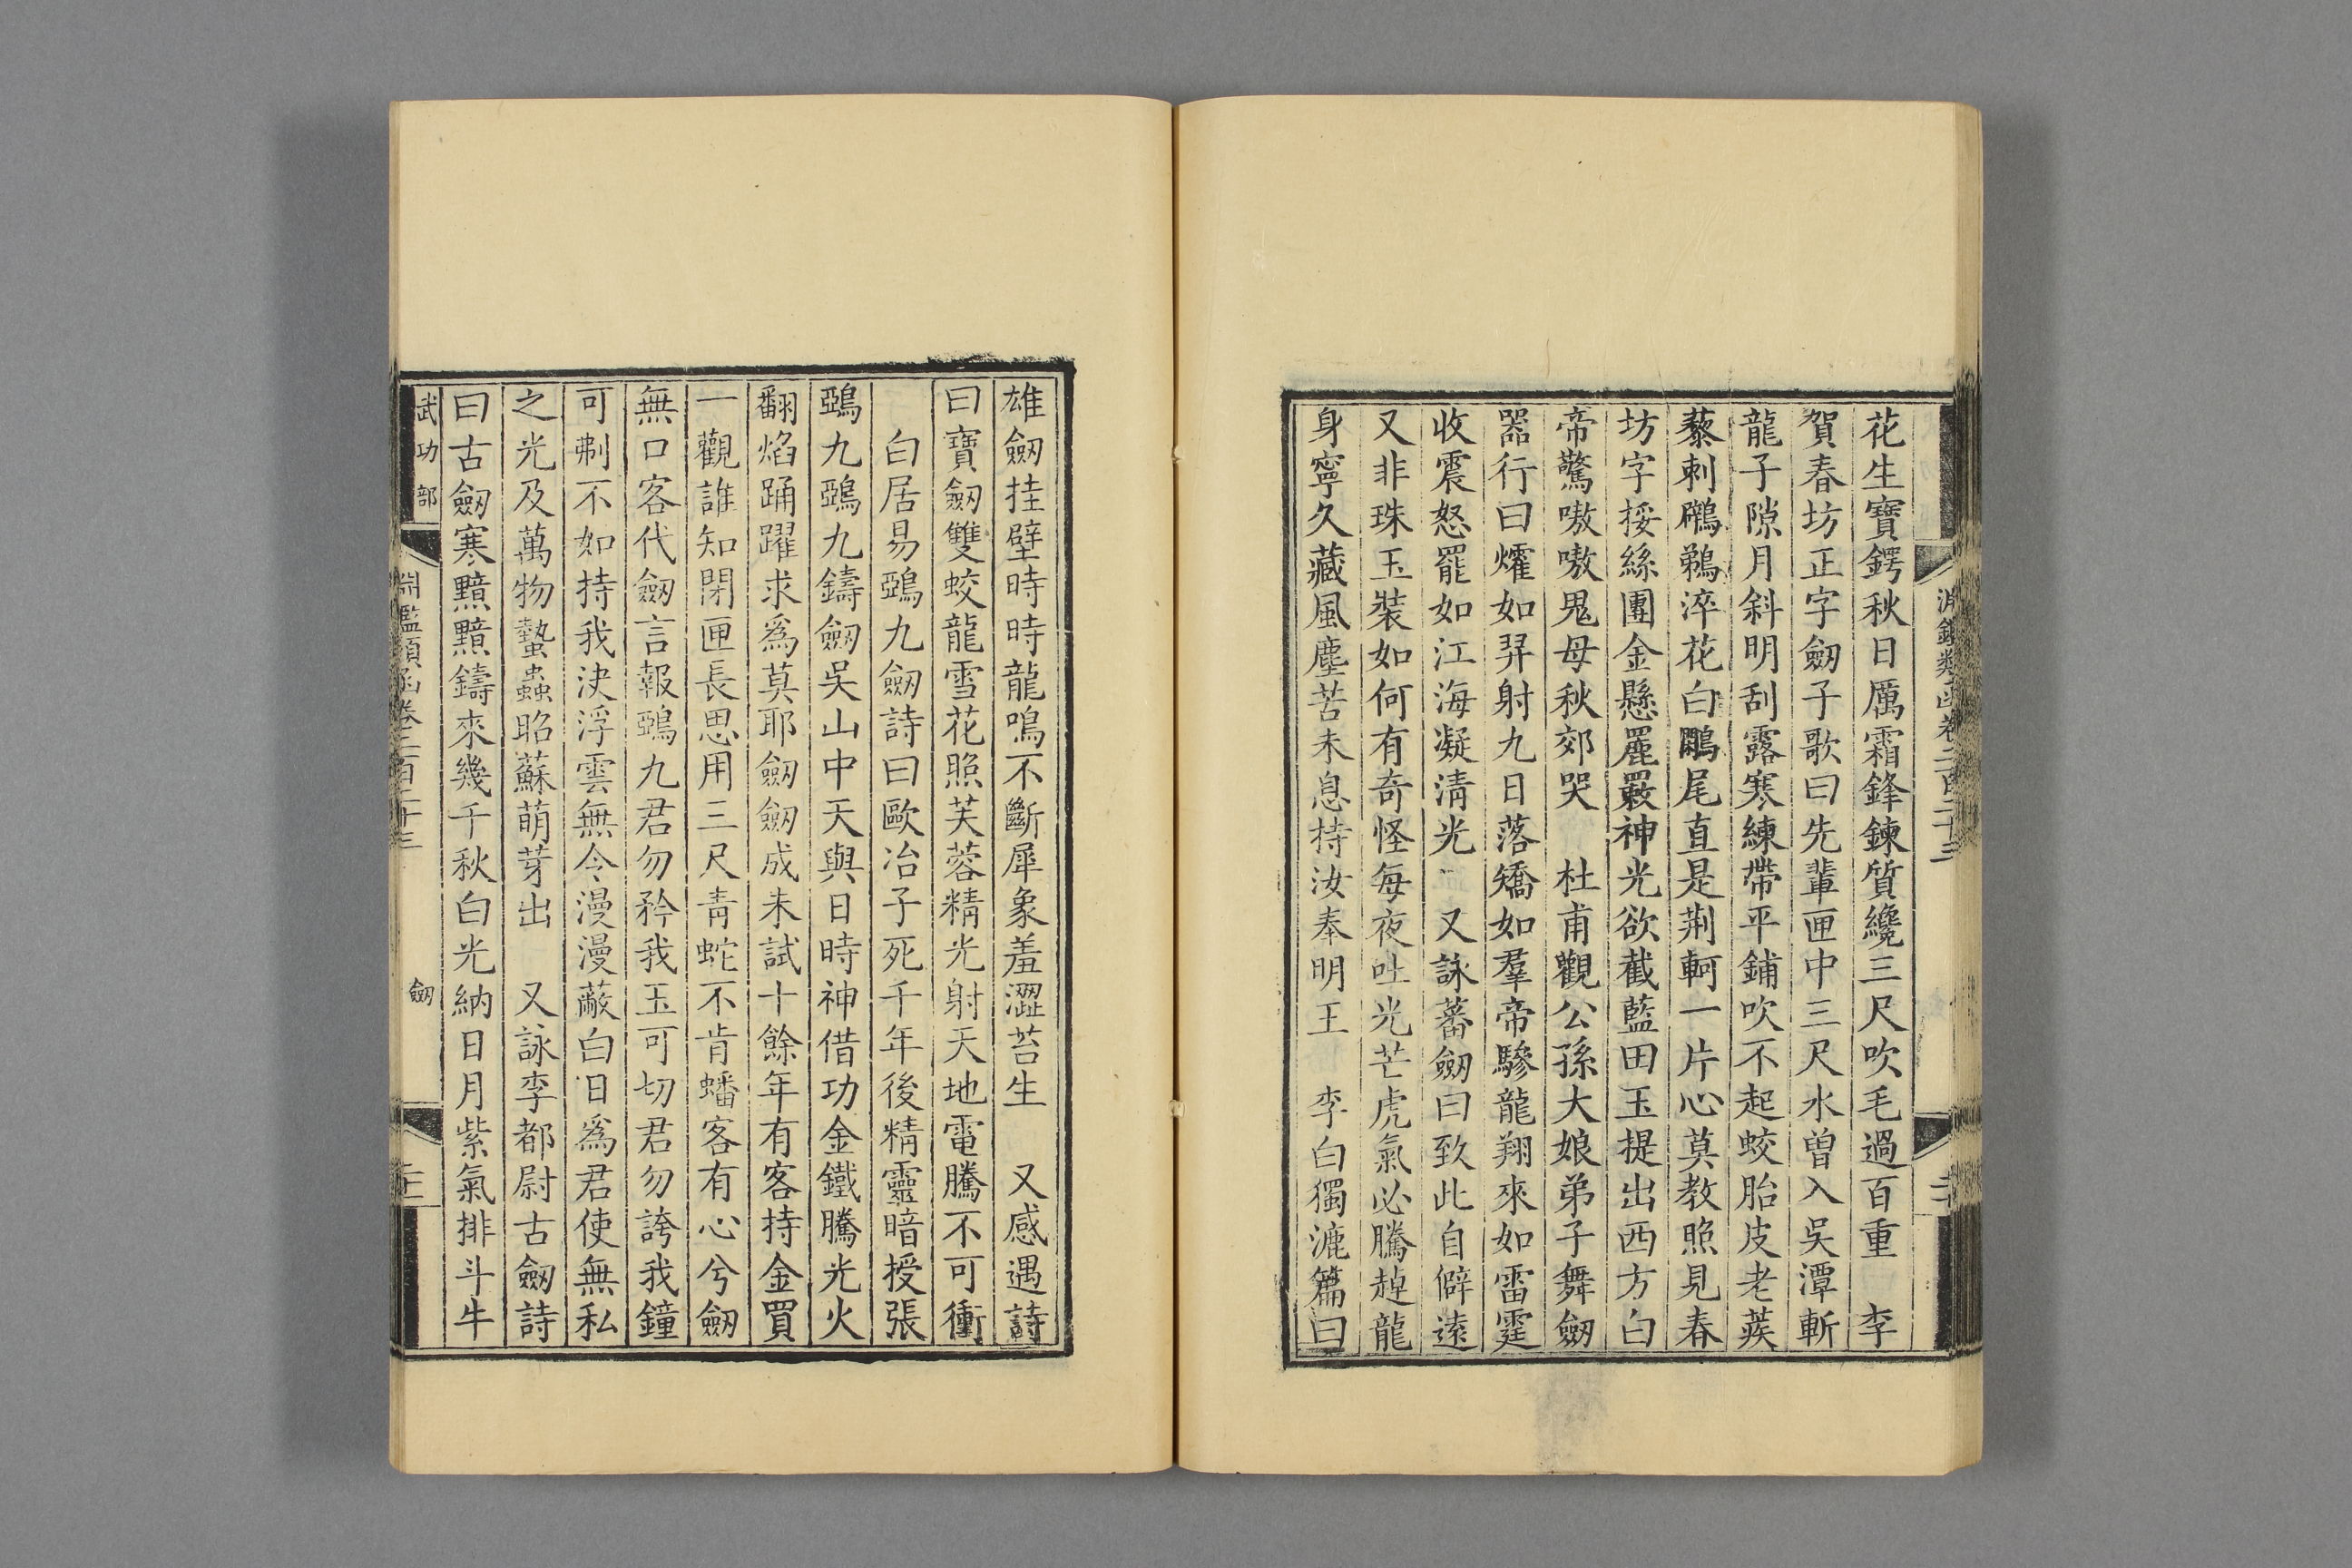 花生寶鍔秋日厲霜鋒鍊質纔三尺吹毛過百重　李
賀春坊正字劒子歌曰先輩匣中三尺水曽入吳潭斬
龍子隙月斜明刮露寒練帶平鋪吹不起蛟胎皮老蒺
藜刺鸊鵜淬花白鷳尾直是荆軻一片心莫教照見春
坊字挼絲團金懸麗䍡神光欲截藍田玉提出西方白
帝驚嗷嗷鬼母秋郊哭　杜甫觀公孫大娘弟子舞劒
器行曰㸌如羿射九日落矯如羣帝驂龍翔來如雷霆
收震怒罷如江海凝清光　又詠蕃劒曰致此自僻遠
又非珠玉裝如何有奇怪每夜吐光芒虎氣必騰趠龍
身寧久藏風塵苦未息持汝奉明王　李白獨漉篇曰
雄劒挂壁時時龍鳴不斷犀象羞澀苔生　又感遇詩
曰寶劒雙蛟龍雪花照芙蓉精光射天地電騰不可衝
白居易鵶九劒詩曰歐冶子死千年後精靈暗授張
鵶九鵶九鑄劒吳山中天與日時神借功金鐵騰光火
翻焰踊躍求爲莫耶劒劒成未試十餘年有客持金買
一觀誰知閉匣長思用三尺青蛇不肯蟠客有心兮劒
無口客代劒言報鵶九君勿矜我玉可切君勿誇我鐘
可刜不如持我決浮雲無令漫漫蔽白日爲君使無私
之光及萬物蟄蟲昭蘇萌芽出　又詠李都尉古劒詩
曰古劒寒黯黯鑄來幾千秋白光納日月紫氣排斗牛
武功部
淵鑑類函卷二百二十三
劒